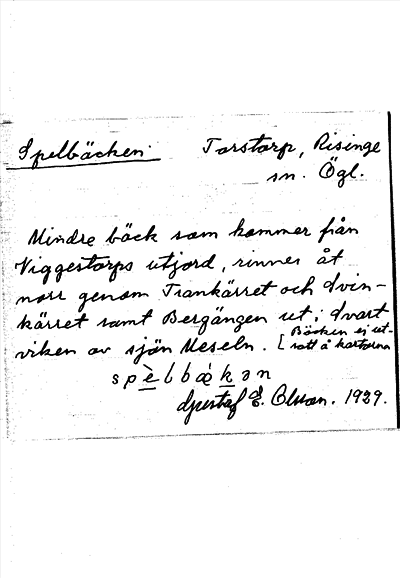 Spelbäcken. Torstorp, Risinge
sn. Ögl.
Mindre bäck som kommer från
Viggestorps utjord, rinner åt
norr genom Trankärret och Dvin-
kärret samt Bergängen ut i Svart
viken av sjön Meseln. [Bäcken ej ut-
satt å kartorna
spèlbǽkən
Gustaf E. Olsson. 1929.